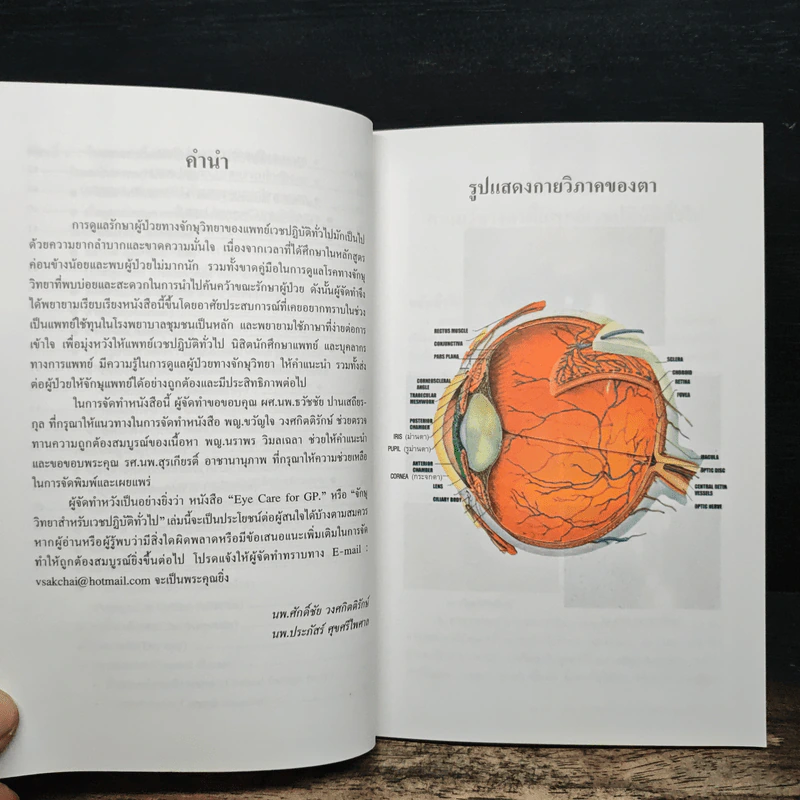 คำนำ
การดูแลรักษาผู้ป่วยทางจักษุวิทยาของแพทย์เวชปฏิบัติทั่วไปมักเป็นไป
ด้วยความยากลำบากและขาดความมั่นใจ เนื่องจากเวลาที่ได้ศึกษาในหลักสูตร
ค่อนข้างน้อยและพบผู้ป่วยไม่มากนัก รวมทั้งขาดคู่มือในการดูแลโรคทางจักษุ
วิทยาที่พบบ่อยและสะดวกในการนำไปค้นคว้าขณะรักษาผู้ป่วย ดังนั้นผู้จัดทำจึง
ได้พยายามเรียบเรียงหนังสือนี้ขึ้นโดยอาศัยประสบการณ์ที่เคยอยากทราบในช่วง
เป็นแพทย์ใช้ทุนในโรงพยาบาลชุมชนเป็นหลัก และพยายามใช้ภาษาที่ง่ายต่อการ
เข้าใจ เพื่อมุ่งหวังให้แพทย์เวชปฏิบัติทั่วไป นิสิตนักศึกษาแพทย์ และบุคลากร
ทางการแพทย์ มีความรู้ในการดูแลผู้ป่วยทางจักษุวิทยา ให้คำแนะนำ รวมทั้งส่ง
ต่อผู้ป่วยให้จักษุแพทย์ได้อย่างถูกต้องและมีประสิทธิภาพต่อไป
ในการจัดทำหนังสือนี้ ผู้จัดทำขอขอบคุณ ผศ.นพ.ธวัชชัย ปานเสถียร-
กุล ที่กรุณาให้แนวทางในการจัดทำหนังสือ พญ.ขวัญใจ วงศกิตติรักษ์ ช่วยตรวจ
ทานความถูกต้องสมบูรณ์ของเนื้อหา พญ.นราพร วิมลเฉลา ช่วยให้คำแนะนำ
และขอขอบพระคุณ รศ.นพ.สุรเกียรติ์ อาชานานุภาพ ที่กรุณาให้ความช่วยเหลือ
ในการจัดพิมพ์และเผยแพร่
ผู้จัดทำหวังเป็นอย่างยิ่งว่า หนังสือ “Eye Care for GP.” หรือ “จักษุ
วิทยาสำหรับเวชปฏิบัติทั่วไป” เล่มนี้จะเป็นประโยชน์ต่อผู้สนใจได้บ้างตามสมควร
หากผู้อ่านหรือผู้รู้พบว่ามีสิ่งใดผิดพลาดหรือมีข้อเสนอแนะเพิ่มเติมในการจัด
ทำให้ถูกต้องสมบูรณ์ยิ่งขึ้นต่อไป โปรดแจ้งให้ผู้จัดทำทราบทาง E-mail :
vsakchai@hotmail.com จะเป็นพระคุณยิ่ง
นพ.ศักดิ์ชัย วงศกิตติรักษ์
นพ.ประภัสร์ ศุขศรีไพศาล
รูปแสดงกายวิภาคของตา
RECTUS MUSCLE
CONJUNCTIVA
PARS PLANA
CORNEOSCLERAL
ANGLE
TRABECULAR
MESHWORK
POSTERIOR
CHAMBER
IRIS (ม่านตา)
PUPIL (รูม่านตา)
ANTERIOR
CHAMBER
CORNEA (กระจกตา)
LENS
CILIARY BODY
SCLERA
CHOROID
RETINA
FOVEA
MACULA
OPTIC DISC
CENTRAL RETIN-
VESSELS
OPTIC NERVE